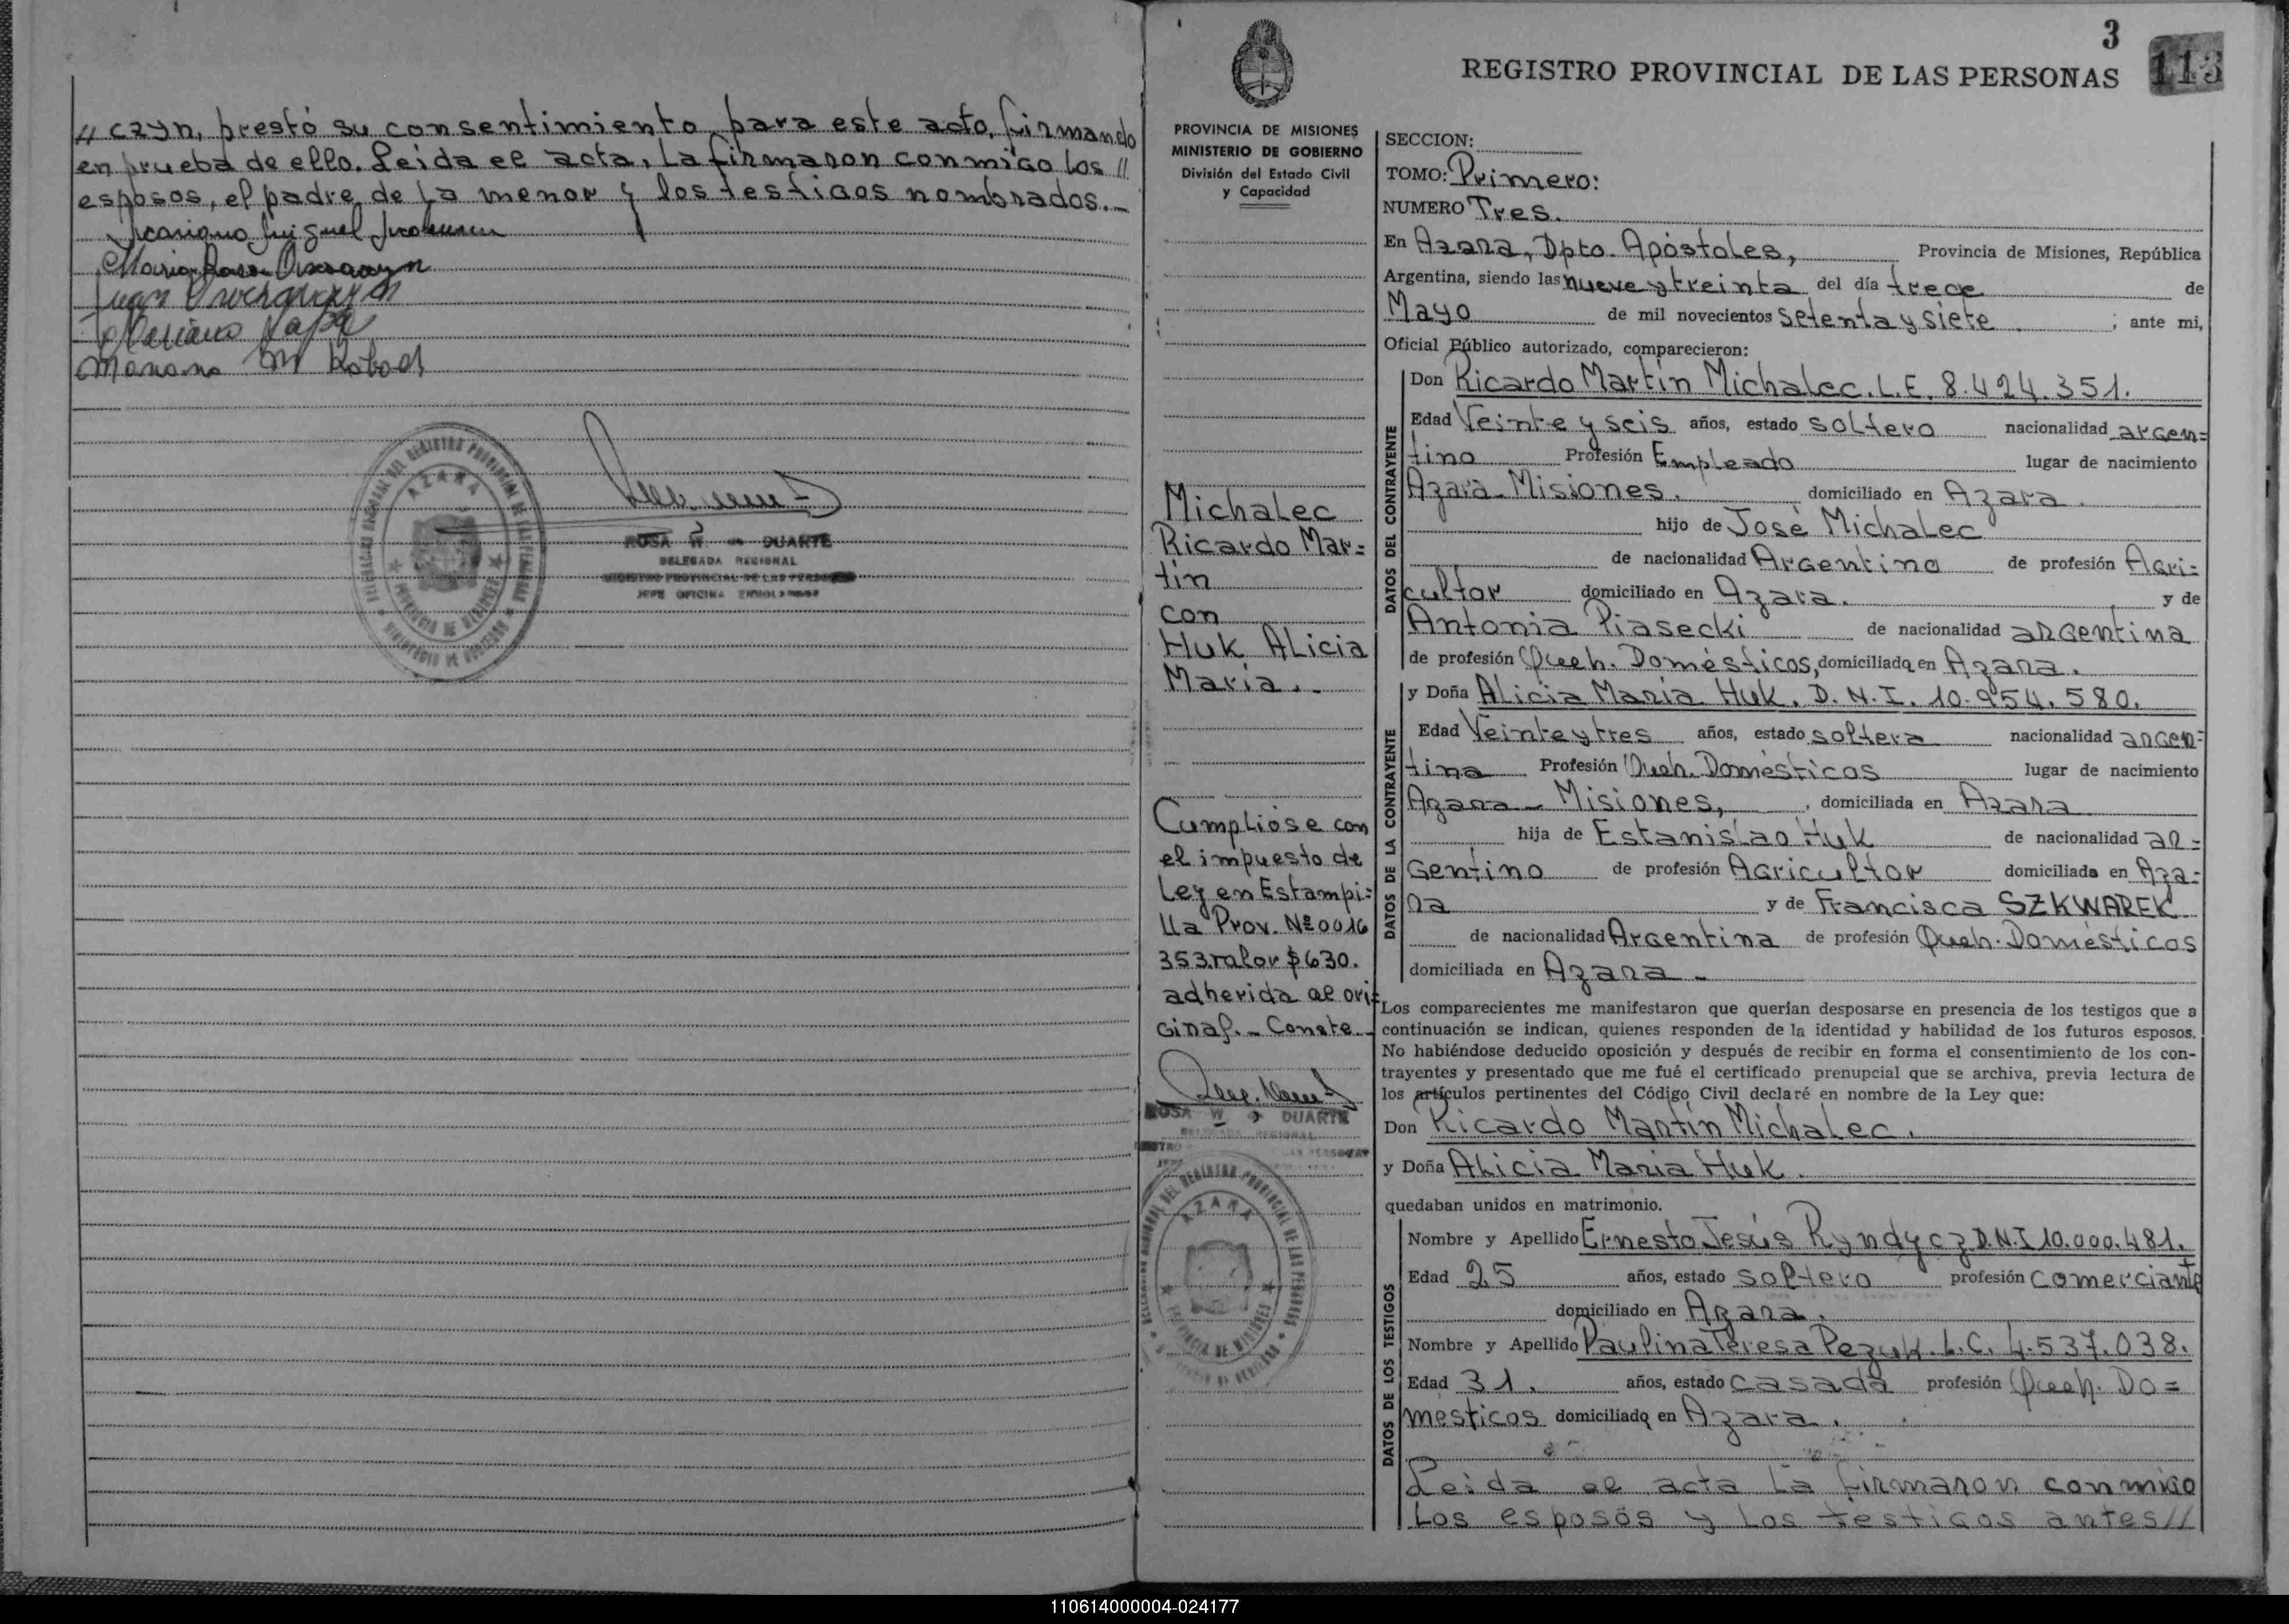 // czyn, prestó su consentimiento para este acto, firmando
en prueba de ello. Leída el acta, la firmaron conmigo los //
esposos, el padre de la menor y los testigos nombrados.-
Mariano
AZARA
ROSA W. de DUARTE
DELEGADA REGIONAL
REGISTRO PROVINCIAL DE LAS PERSONAS
3
113
REGISTRO PROVINCIAL DE LAS PERSONAS
PROVINCIA DE MISIONES
MINISTERIO DE GOBIERNO
División del Estado Civil
y Capacidad
Michalec
Ricardo Mar=
tín
con
Huk Alicia
María.-
Cumplióse con
el impuesto de
Ley en Estampi=
lla Prov. Nº 0016
353 valor $ 630.
adherida al ori=
ginal.- Conste.-
ROSA W. de DUARTE
DELEGADA REGIONAL
AZARA
SECCION:
TOMO: Primero:
NUMERO Tres.
En Azara, Dpto. Apóstoles, Provincia de Misiones, República
Argentina, siendo las nueve y treinta del día trece de
Mayo de mil novecientos setenta y siete ; ante mi,
Oficial Público autorizado, comparecieron:
DATOS DEL CONTRAYENTE
Don Ricardo Martín Michalec. L.E. 8.424.351.
Edad Veinte y seis años, estado soltero nacionalidad argen=
tino Profesión Empleado lugar de nacimiento
Azara - Misiones. domiciliado en Azara.
hijo de José Michalec
de nacionalidad Argentino de profesión Agri=
cultor domiciliado en Azara. y de
Antonia Piasecki de nacionalidad argentina
de profesión Queh. Domésticos, domiciliada en Azara.
DATOS DE LA CONTRAYENTE
y Doña Alicia María Huk. D.N.I. 10.954.580.
Edad Veinte y tres años, estado soltera nacionalidad argen=
tina Profesión Queh. Domésticos lugar de nacimiento
Azara - Misiones, , domiciliada en Azara
hija de Estanislao Huk de nacionalidad ar=
gentino de profesión Agricultor domiciliada en Aza=
ra y de Francisca SZKWAREK
de nacionalidad Argentina de profesión Queh. Domésticos
domiciliada en Azara -
Los comparecientes me manifestaron que querían desposarse en presencia de los testigos que a
continuación se indican, quienes responden de la identidad y habilidad de los futuros esposos.
No habiéndose deducido oposición y después de recibir en forma el consentimiento de los con-
trayentes y presentado que me fué el certificado prenupcial que se archiva, previa lectura de
los artículos pertinentes del Código Civil declaré en nombre de la Ley que:
Don Ricardo Martín Michalec.
y Doña Alicia María Huk.
quedaban unidos en matrimonio.
DATOS DE LOS TESTIGOS
Nombre y Apellido Ernesto Jesús Ryndycz D.N.I 10.000.481.
Edad 25 años, estado soltero profesión comerciante
domiciliado en Azara.
Nombre y Apellido Paulina Teresa Pezuk. L.C. 4.537.038.
Edad 31. años, estado casada profesión Queh. Do=
mésticos domiciliada en Azara.
Leída el acta la firmaron conmigo
los esposos y los testigos antes//
110614000004-024177